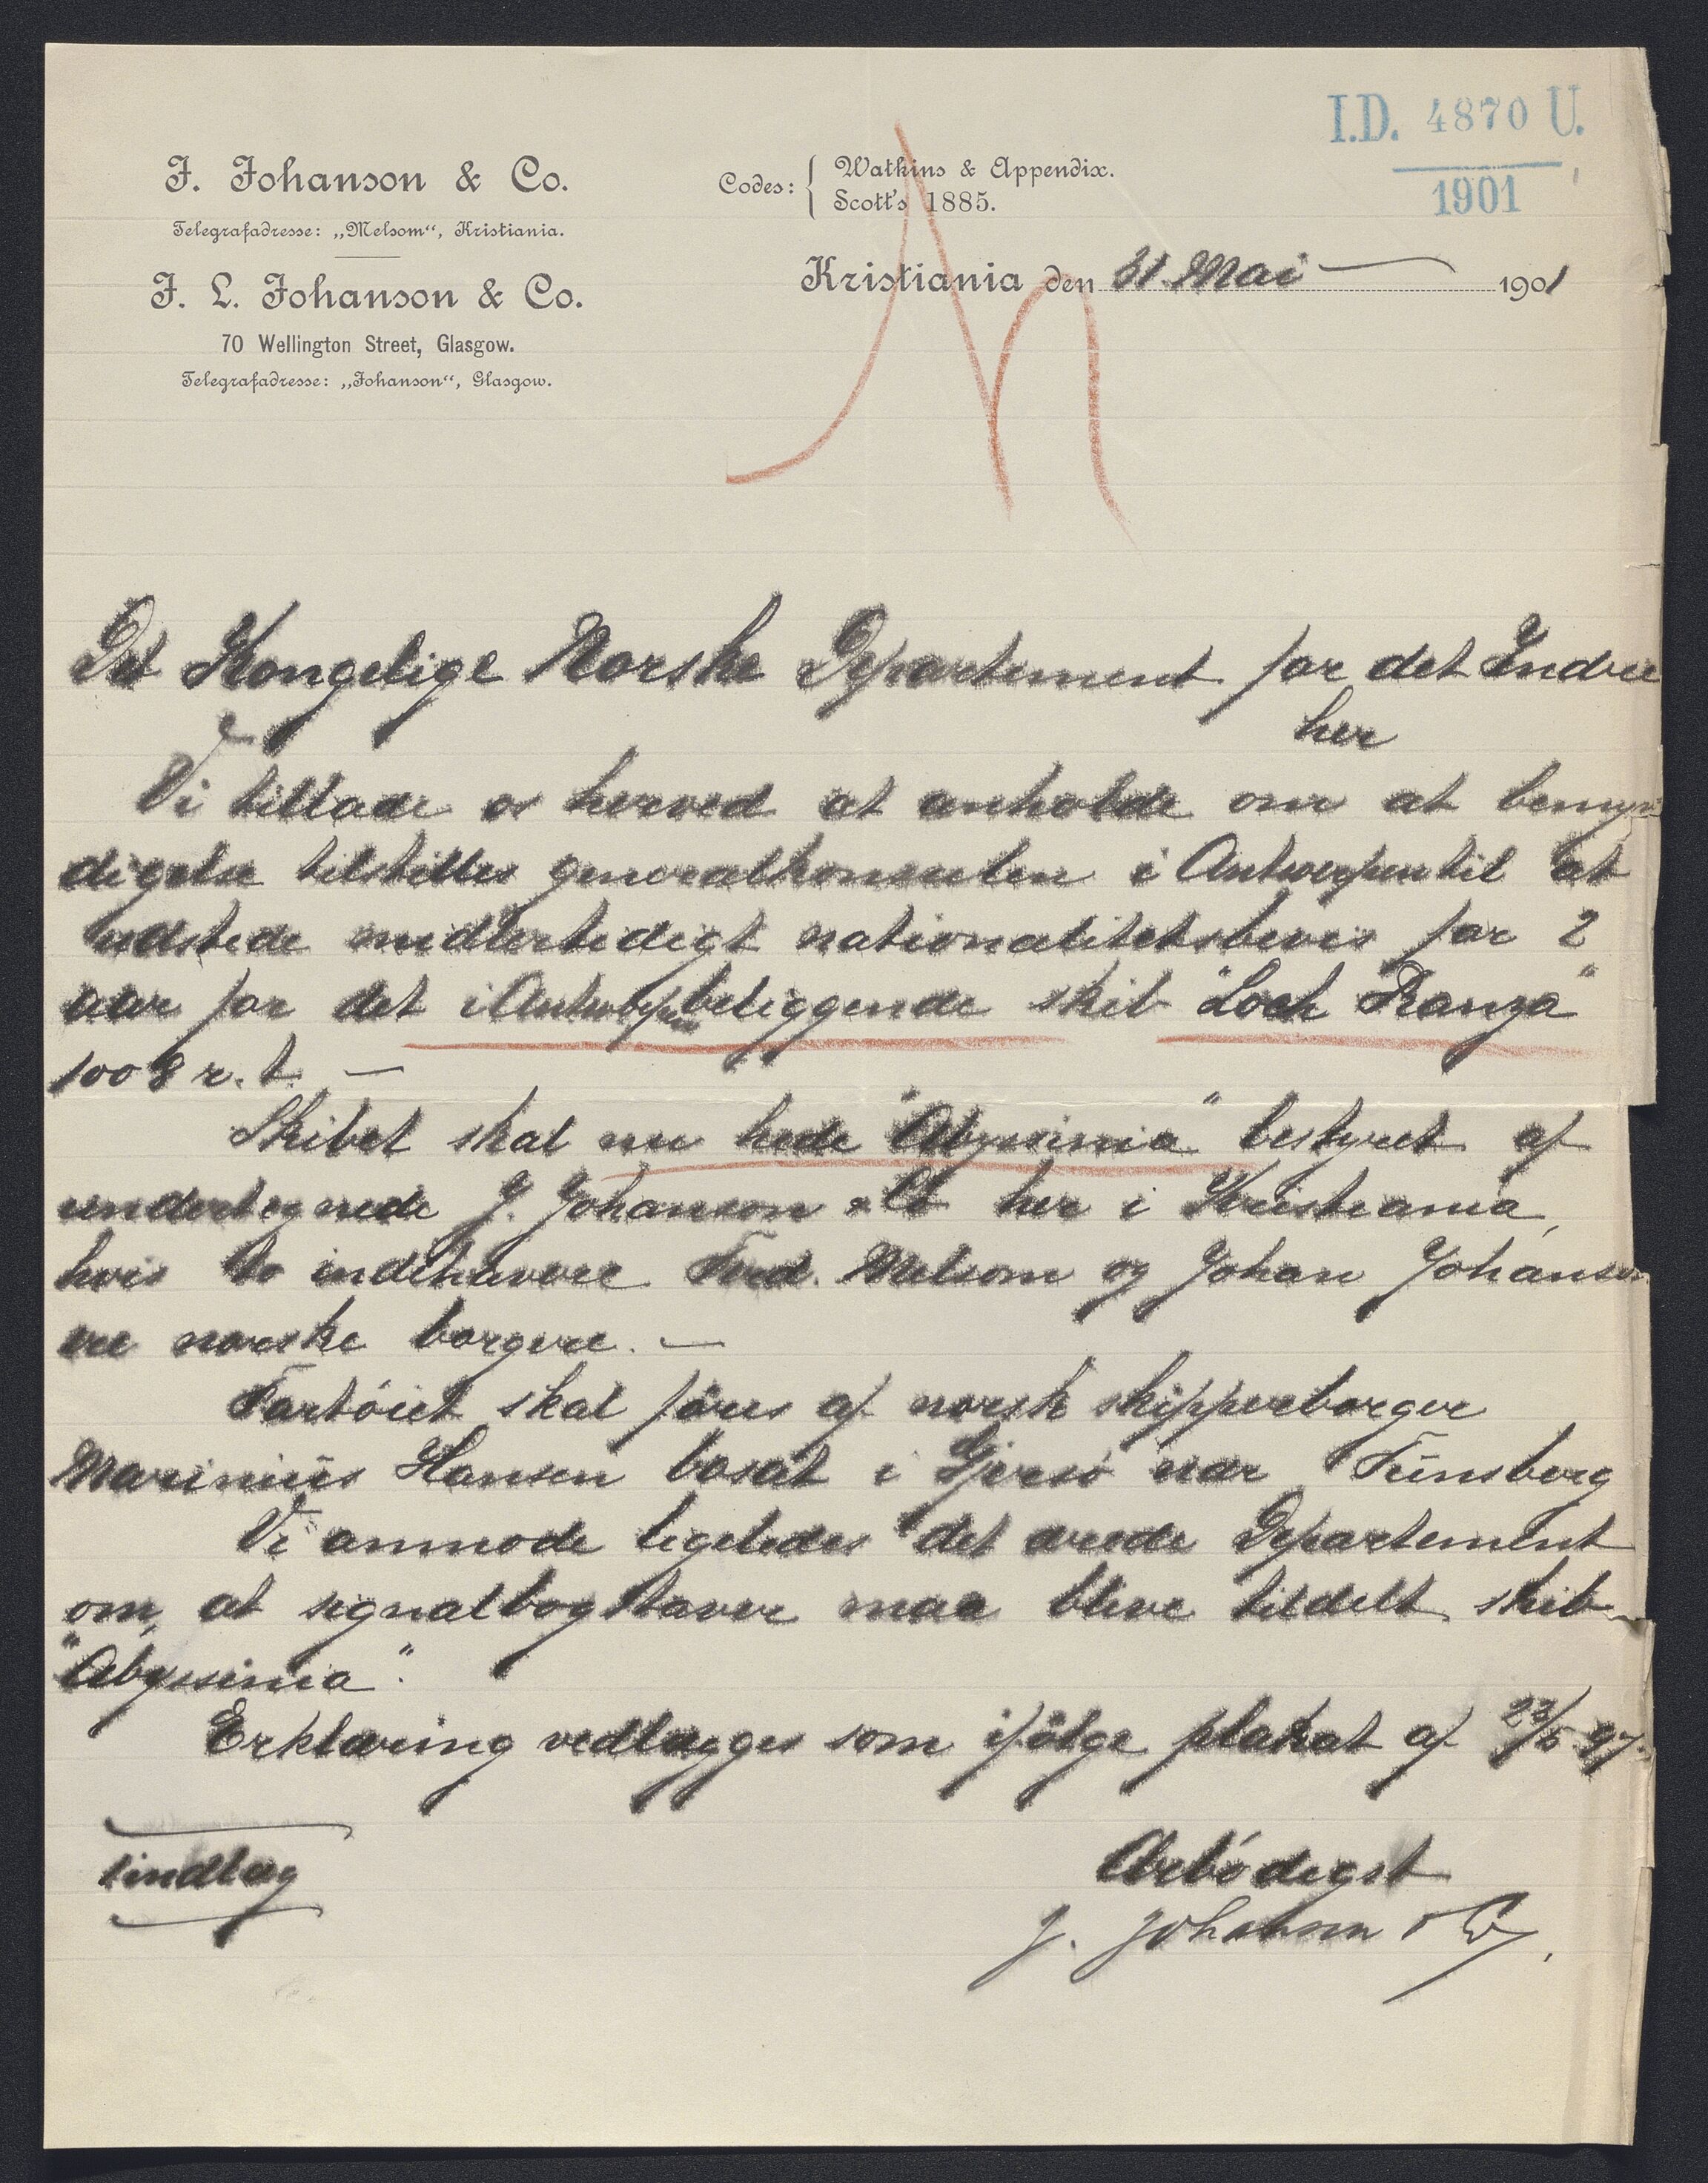 I.D. 4870 U.
1901
J. Johanson & Co.
Telegrafadresse: „Melsom“, Kristiania.
J. L. Johanson & Co.
70 Wellington Street, Glasgow.
Telegrafadresse: „Johanson“, Glasgow.
Codes: { Watkins & Appendix.
Scott's 1885.
Kristiania den 31. Mai 1901
N
Det Kongelige Norske Departement for det Indre
her
Vi tillade os herved at anholde om at bemyn
digelse tilstilles generalkonsulen i Antwerpen til at
udstede midlertidigt nationalitetsbevis for 2
aar for det i Antwerpen beliggende skib "Loch Ranza"
1008 r.t. —
Skibet skal nu hede "Abyssinia" bestyret af
undertegnede J. Johanson & Co her i Kristiania,
hvis to indehavere Fred. Melsom og Johan Johanson
ere norske borgere. —
Fartöiet skal föres af norsk skipperborger
Marinius Hansen bosat i nær Tünsberg
Vi anmode ligeledes det ærede Departement
om, at signalbogstaver maa blive tildelt skib
"Abyssinia".
Erklæring vedlægges som ifölge plakat af 23/5 97.
1 indlæg
Ærbödigst
J. Johanson & Co.